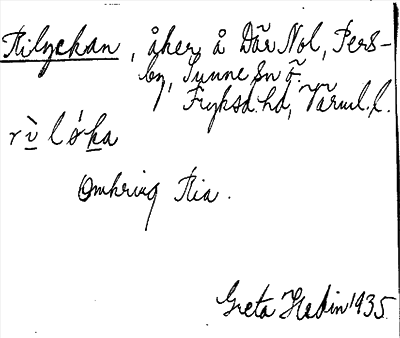 Rilyckan, åker å Där Nol, Pers-
by, Sunne sn Ö.
Fryksd. hd, Värml. l.
rì̱ l ǿḵa
Omkring Ria.
Greta Hedin 1935